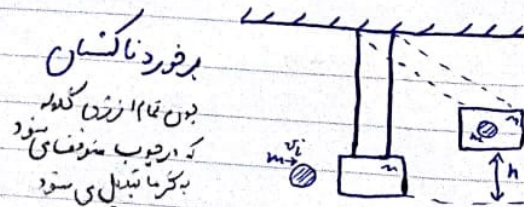 برخورد ناکشسان
چون تمام انرژی گلوله
که در چوب متوقف می شود
به گرما تبدیل می شود
m v_i
m
h